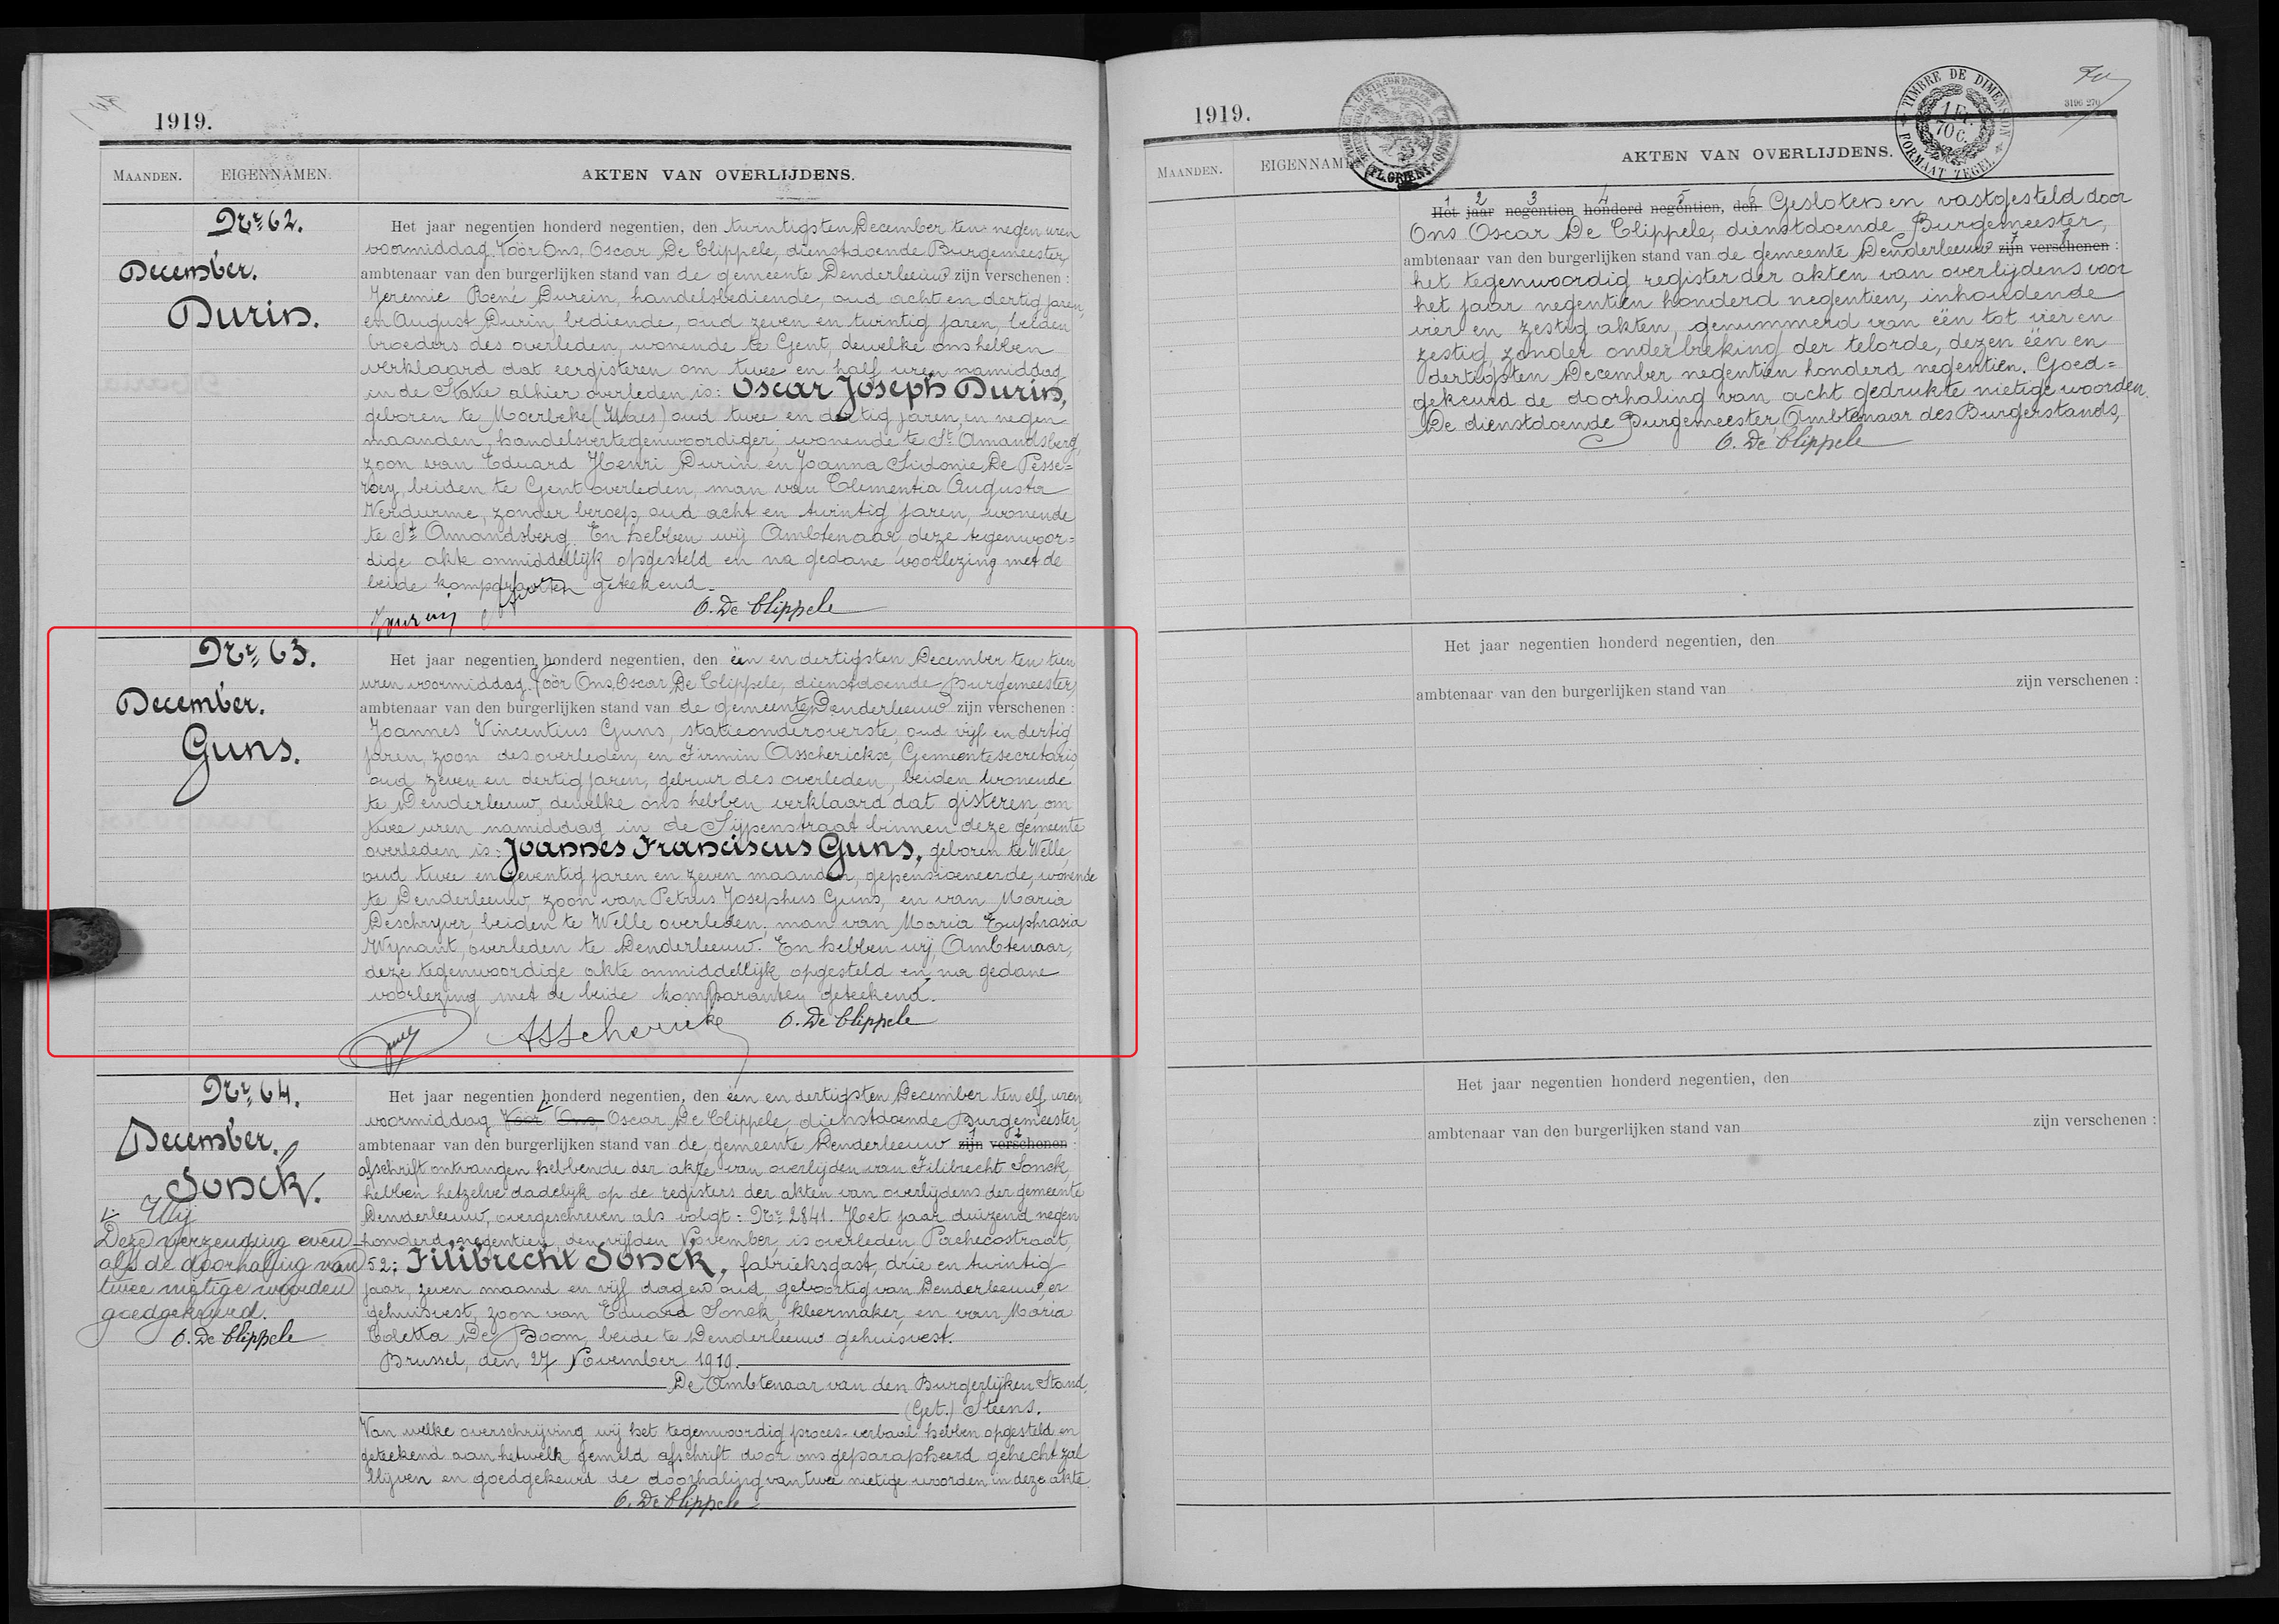 1919.
MAANDEN.
EIGENNAMEN.
AKTEN VAN OVERLIJDENS.
Nr. 62.
December.
Durin.
Het jaar negentien honderd negentien, den twintigsten December ten negen uren
voormiddag Vóór Ons, Oscar De Clippele, dienstdoende Burgemeester,
ambtenaar van den burgerlijken stand van de gemeente Denderleeuw zijn verschenen :
Jeremie René Durein, handelsbediende, oud acht en dertig jaren,
en August Durin, bediende, oud zeven en twintig jaren, beiden
broeders des overleden, wonende te Gent, dewelke ons hebben
verklaard dat eergisteren om twee en half uren namiddag
in de Statie alhier overleden is: Oscar Joseph Durin,
geboren te Moerbeke (Waes) oud twee en dertig jaren, en negen
maanden, handelsvertegenwoordiger, wonende te St. Amandsberg,
zoon van Eduard Henri Durin en Joanna Sidonie De Pesse=
roey, beiden te Gent overleden, man van Clementia Augusta
Verdurme, zonder beroep, oud acht en twintig jaren, wonende
te St. Amandsberg. En hebben wij Ambtenaar, deze tegenwoor=
dige akte onmiddellijk opgesteld en na gedane voorlezing met de
beide komparanten geteekend.
O. De Clippele
Nr. 63.
December.
Guns.
Het jaar negentien honderd negentien, den één en dertigsten December ten tien
uren voormiddag Vóór Ons, Oscar De Clippele, dienstdoende Burgemeester,
ambtenaar van den burgerlijken stand van de gemeente Denderleeuw zijn verschenen :
Joannes Vincentius Guns, statieonderoverste, oud vijf en dertig
jaren, zoon des overleden, en Firmin Asscherickx, Gemeentesecretaris,
oud zeven en dertig jaren, gebuur des overleden, beiden wonende
te Denderleeuw, dewelke ons hebben verklaard dat gisteren, om
twee uren namiddag in de Sijpenstraat binnen deze gemeente
overleden is: Joannes Franciscus Guns, geboren te Welle,
oud twee en zeventig jaren en zeven maanden, gepensioeneerde, wonende
te Denderleeuw, zoon van Petrus Josephus Guns, en van Maria
Deschryver, beiden te Welle overleden, man van Maria Euphrasia
Wynant, overleden te Denderleeuw. En hebben wij, Ambtenaar,
deze tegenwoordige akte onmiddellijk opgesteld en na gedane
voorlezing met de beide komparanten geteekend.
Guns Asscherickx O. De Clippele
Nr. 64.
December.
Sonck.
Het jaar negentien honderd negentien, den één en dertigsten December ten elf uren
voormiddag Vóór Ons, Oscar De Clippele, dienstdoende Burgemeester,
ambtenaar van den burgerlijken stand van de gemeente Denderleeuw zijn verschenen :
afschrift ontvangen hebbende der akte van overlijden van Filibrecht Sonck,
hebben hetzelve dadelijk op de registers der akten van overlijdens der gemeente
Denderleeuw, overgeschreven als volgt: Nr. 2841. Het jaar duizend negen
honderd negentien, den vijfden November, is overleden, Pachecostraat,
52: Filibrecht Sonck, fabrieksgast, drie en twintig
jaar, zeven maand en vijf dagen oud, geboortig van Denderleeuw, er
gehuisvest, zoon van Eduard Sonck, kleermaker, en van Maria
Coletta De Boom, beide te Denderleeuw gehuisvest.
Brussel, den 27 November 1919.
De Ambtenaar van den Burgerlijken Stand,
(Get.) Steens.
Van welke overschrijving wij het tegenwoordig proces-verbaal hebben opgesteld en
geteekend aan hetwelk gemeld afschrift door ons geparapheerd gehecht zal
blijven en goedgekeurd de doorhaling van twee nietige woorden in deze akte.
O. De Clippele
Wij
Deze verzending even-
als de doorhaling van
twee nietige woorden
goedgekeurd.
O. De Clippele
1919.
MAANDEN.
AKTEN VAN OVERLIJDENS.
TIMBRE DE DIMENSION
1 Fr. 70 C.
FORMAAT ZEGEL
3196 270
1 2 3 4 5 6
Het jaar negentien honderd negentien, den Gesloten en vastgesteld door
Ons Oscar De Clippele, dienstdoende Burgemeester,
ambtenaar van den burgerlijken stand van de gemeente Denderleeuw zijn verschenen :
het tegenwoordig register der akten van overlijdens voor
het jaar negentien honderd negentien, inhoudende
vier en zestig akten, genummerd van één tot vier en
zestig zonder onderbreking der telorde, dezen één en
dertigsten December negentien honderd negentien. Goed=
gekeurd de doorhaling van acht gedrukte nietige woorden.
De dienstdoende Burgemeester, Ambtenaar des Burgerstands,
O. De Clippele
Het jaar negentien honderd negentien, den
ambtenaar van den burgerlijken stand van zijn verschenen :
Het jaar negentien honderd negentien, den
ambtenaar van den burgerlijken stand van zijn verschenen :